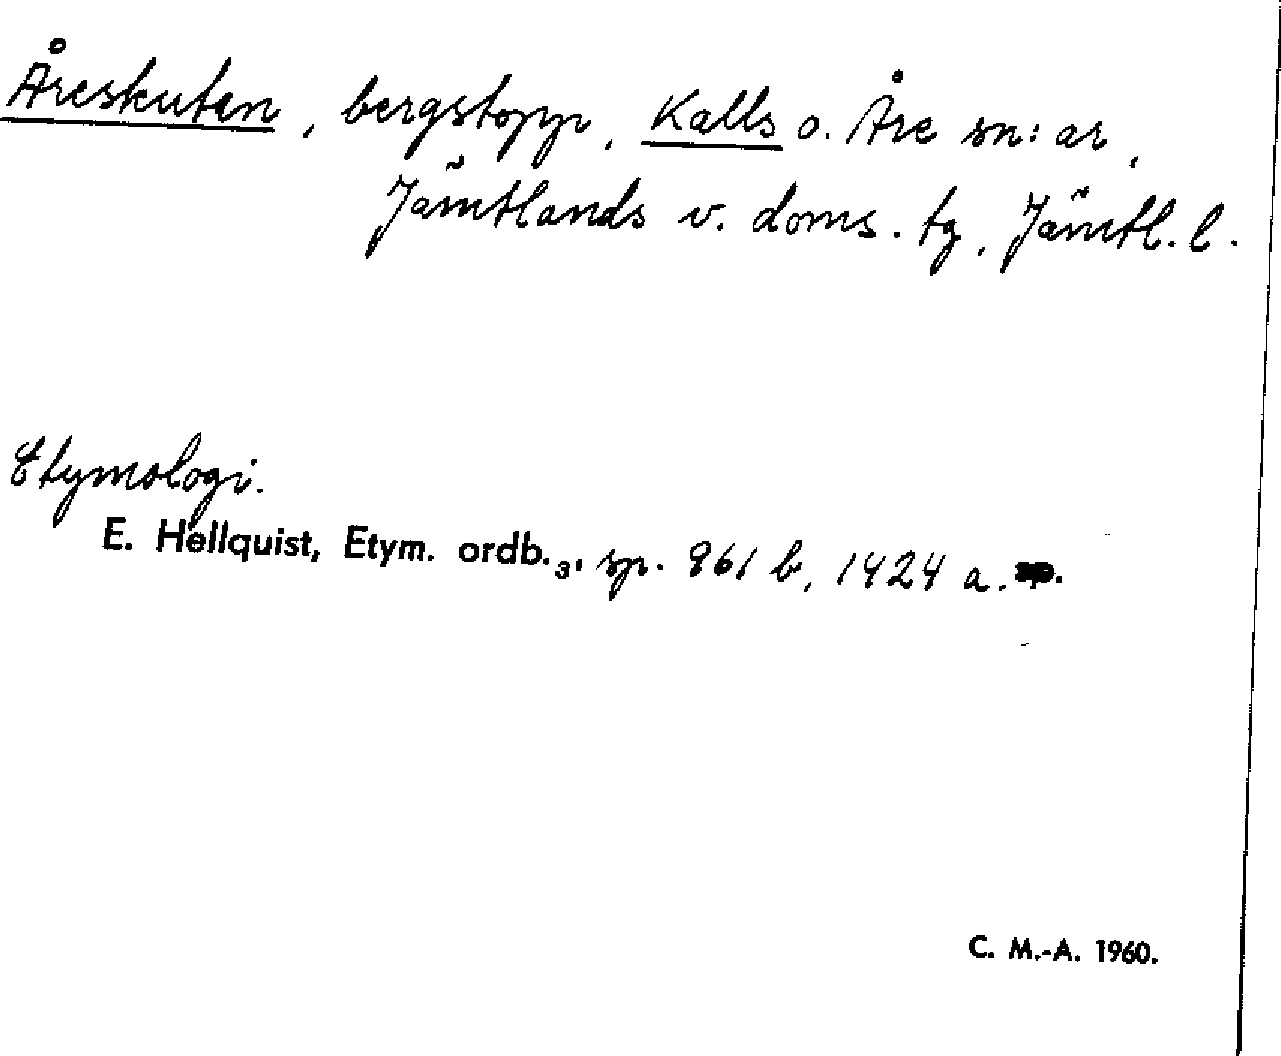 Åreskutan, bergstopp, Kalls o. Åre sn:ar,
Jämtlands v. doms. tg, Jämtl. l.
Etymologi.
E. Hellquist, Etym. ordb.₃, sp. 961 b, 1424 a.
C. M.-A. 1960.